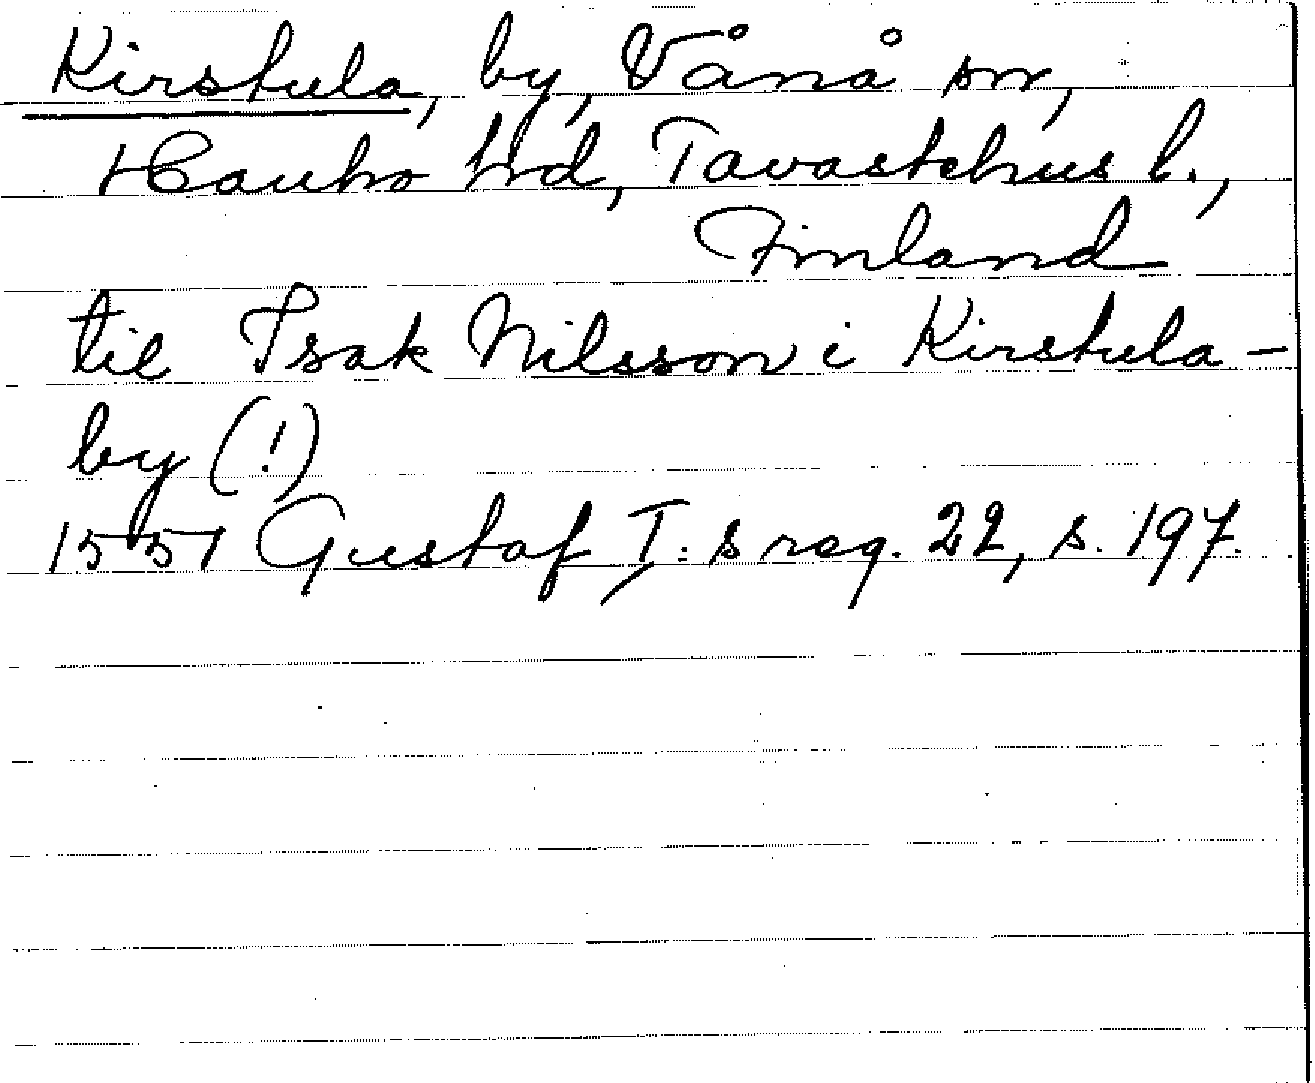 Kirstula, by, Vånå sn,
Hauho hd, Tavastehus l.,
Finland
til Isak Nilsson i Kirstula-
by (!)
1551 Gustaf I:s reg. 22, s. 197.